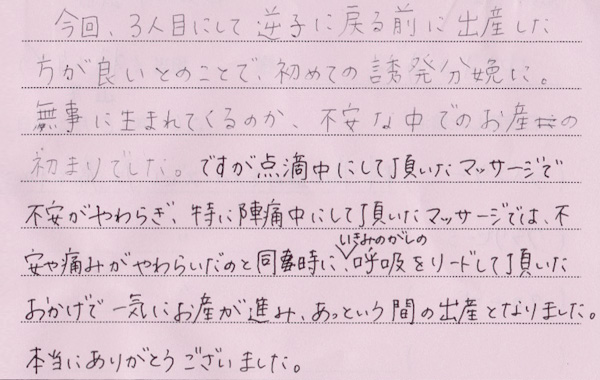 今回、3人目にして逆子に戻る前に出産した
方が良いとのことで、初めての誘発分娩に。
無事に生まれてくるのか、不安な中でのお産の
初まりでした。ですが点滴中にして頂いたマッサージで
不安がやわらぎ、特に陣痛中にして頂いたマッサージでは、不
いきみのがしの
安や痛みがやわらいだのと同時に、呼吸をリードして頂いた
おかげで一気にお産が進み、あっという間の出産となりました。
本当にありがとうございました。